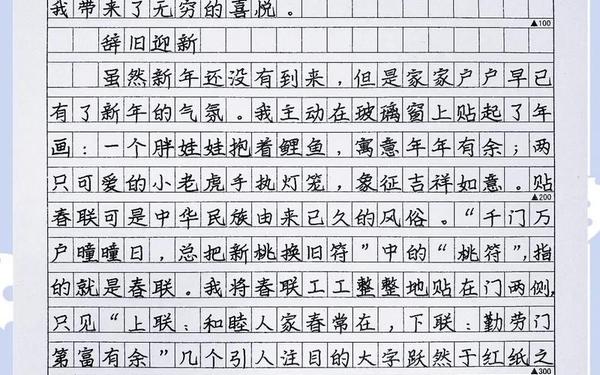 我带来了无穷的喜悦。
▲100
辞旧迎新
虽然新年还没有到来，但是家家户户早已
有了新年的气氛。我主动在玻璃窗上贴起了年
画：一个胖娃娃抱着鲤鱼，寓意年年有余；两
只可爱的小老虎手执灯笼，象征吉祥如意。贴
▲200
春联可是中华民族由来已久的风俗。“千门万
户曈曈日，总把新桃换旧符”中的“桃符”，指
的就是春联。我将春联工工整整地贴在门两侧，
只见“上联：和睦人家春常在，下联：勤劳门
第富有余”几个引人注目的大字跃然于红纸之
▲300